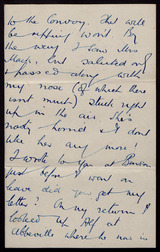 to the Convoy. That will
be ripping won't. By
the way I saw Mrs
Hays. but saluted only
& passed along with
my nose (of which there
isn't much) stuck right
up in the air. He's
horrid & I don't
like her any more!
I wrote to you at
just before I went on
leave did you get my
letter? On my return I
looked up Alf at
Abbeville where he was in